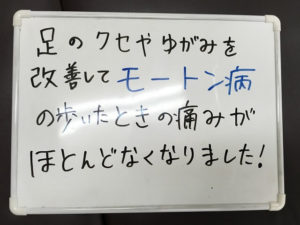 足のクセやゆがみを
改善してモートン病
の歩いたときの痛みが
ほとんどなくなりました!